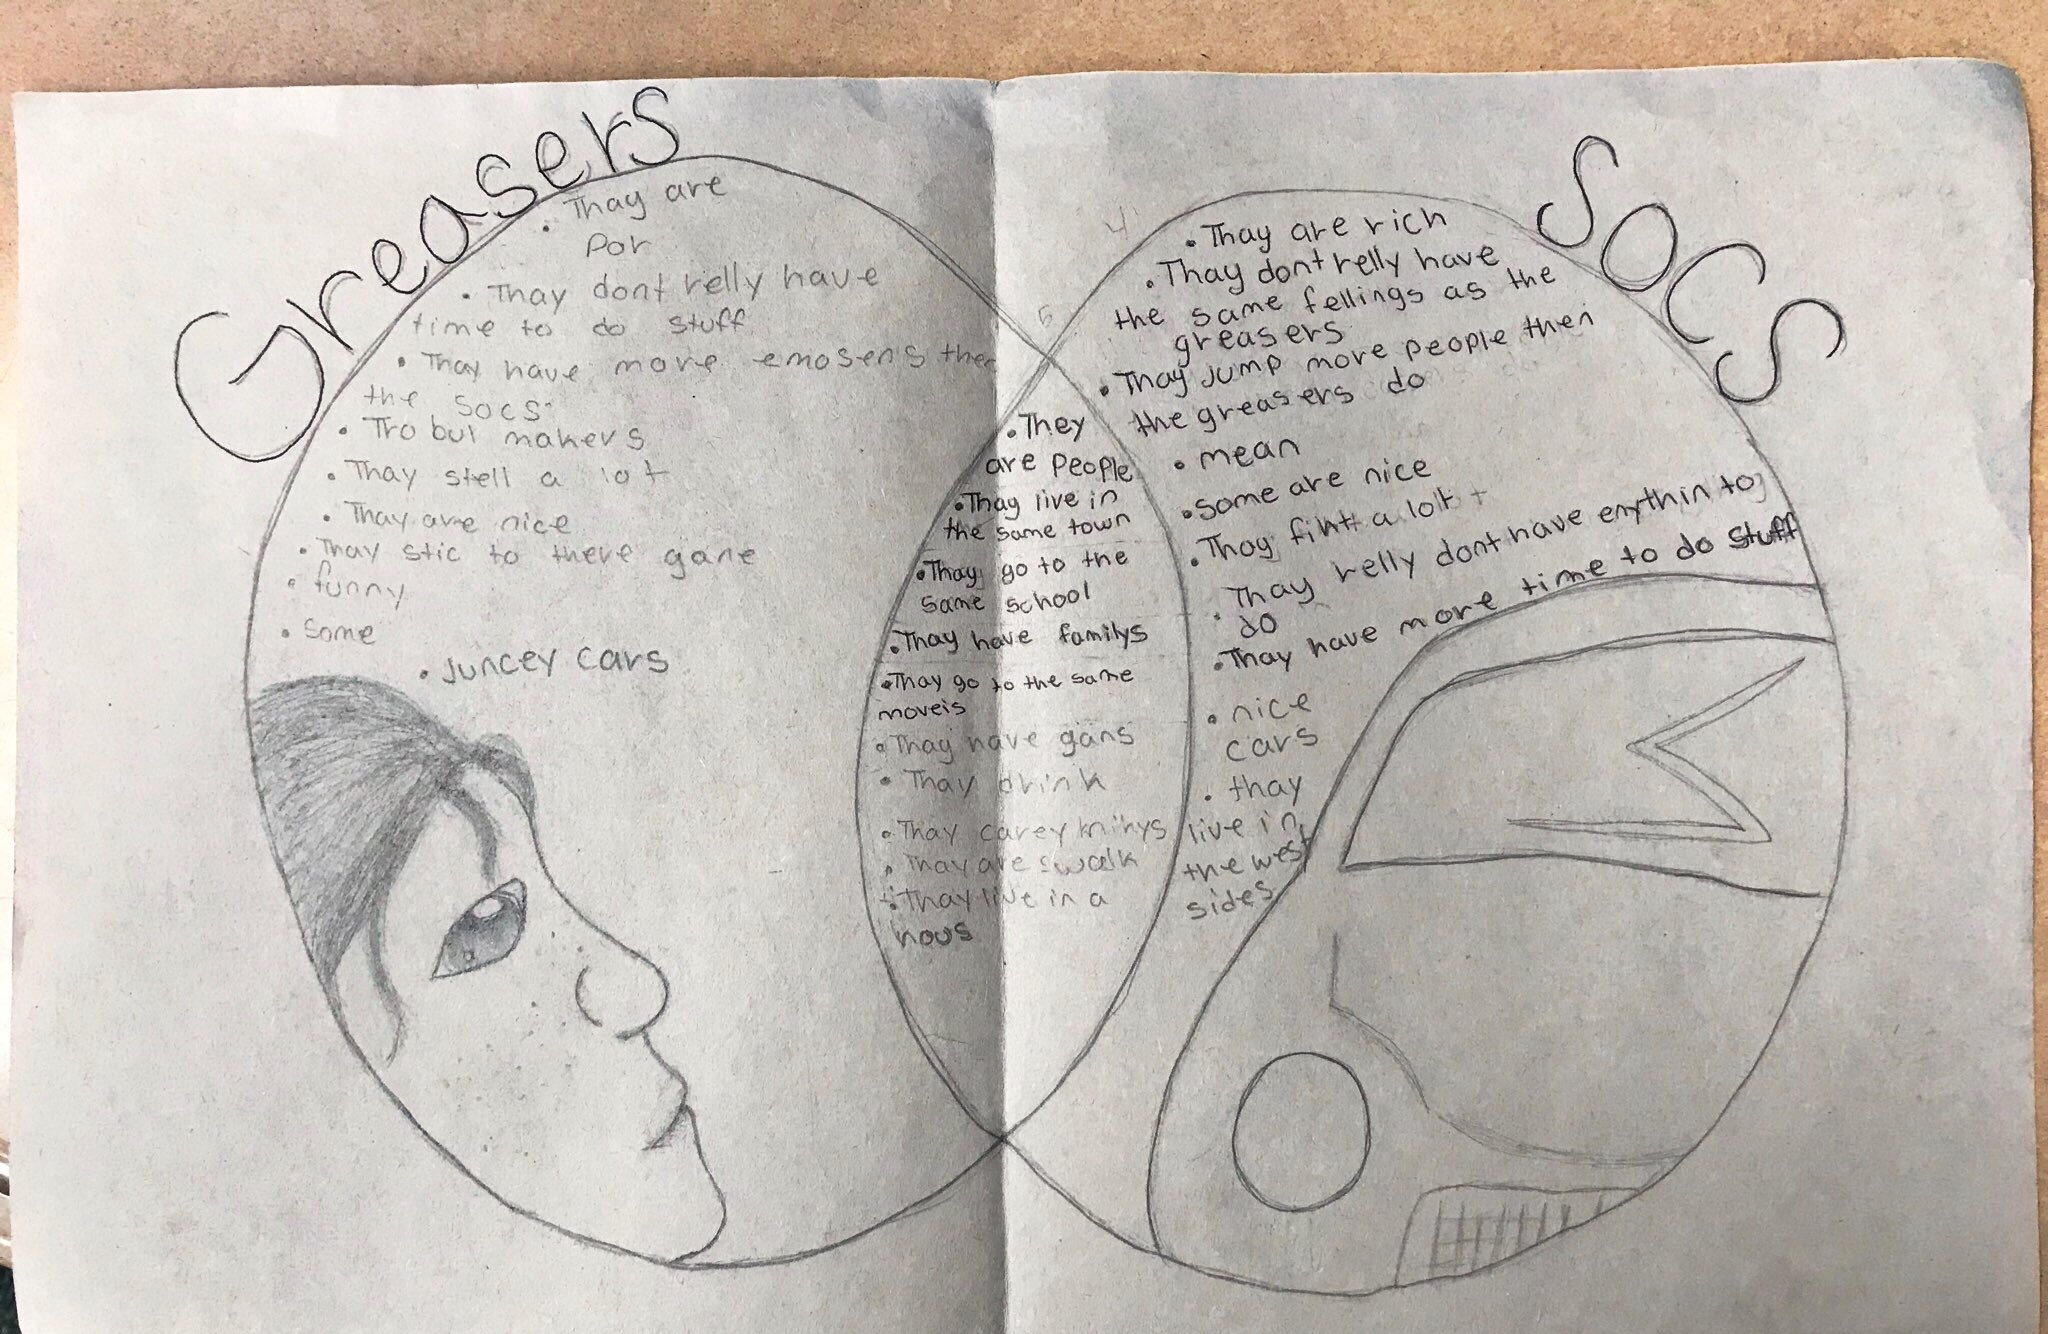 Greasers
• Thay are
por
• Thay dont relly have
time to do stuff
• Thay have more emosens then
the socs.
• Tro bul makers
• Thay stell a lot
• Thay are nice
• Thay stic to there gane
• funny
• some
• Juncey cars
• They
are people
• Thay live in
the same town
• Thay go to the
same school
• Thay have familys
• Thay go to the same
moveis
• Thay have gans
• Thay drink
• Thay carey knihys
• Thay are swalk
• Thay live in a
hous
Socs
• Thay are rich
• Thay dont relly have
the same fellings as the
greasers
• Thay jump more people then
the greasers do
• mean
• some are nice
• Thay a lot
• Thay relly dont have enythin to
do
• Thay have more time to do stuff
• nice
cars
• thay
live in
the west
sides